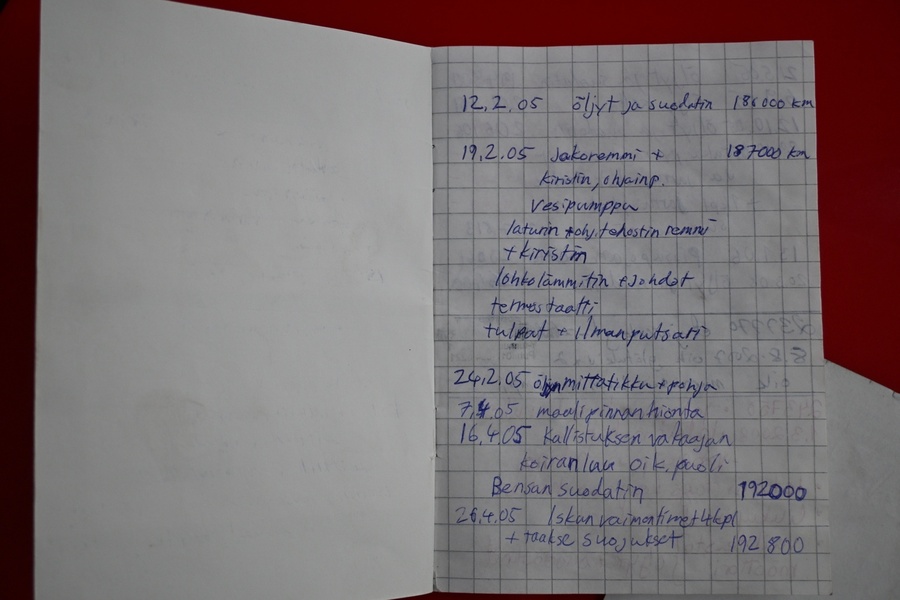 12.2.05 öljyt ja suodatin 186000 km
19.2.05 Jakoremmi + 187000 km
kiristin, ohjainp.
vesipumppu
laturin + ohj. tehostin remmi
+ kiristin
lohkolämmitin + Johdot
termostaatti
tulpat + ilmanputsari
24.2.05 öljynmittatikku + pohja
7.4.05 maalipinnan hionta
16.4.05 Kallistuksen vakaajan
koiranluu oik. puoli
Bensan suodatin 192000
26.4.05 Iskunvaimentimet 4kpl
+ taakse suojukset 192800